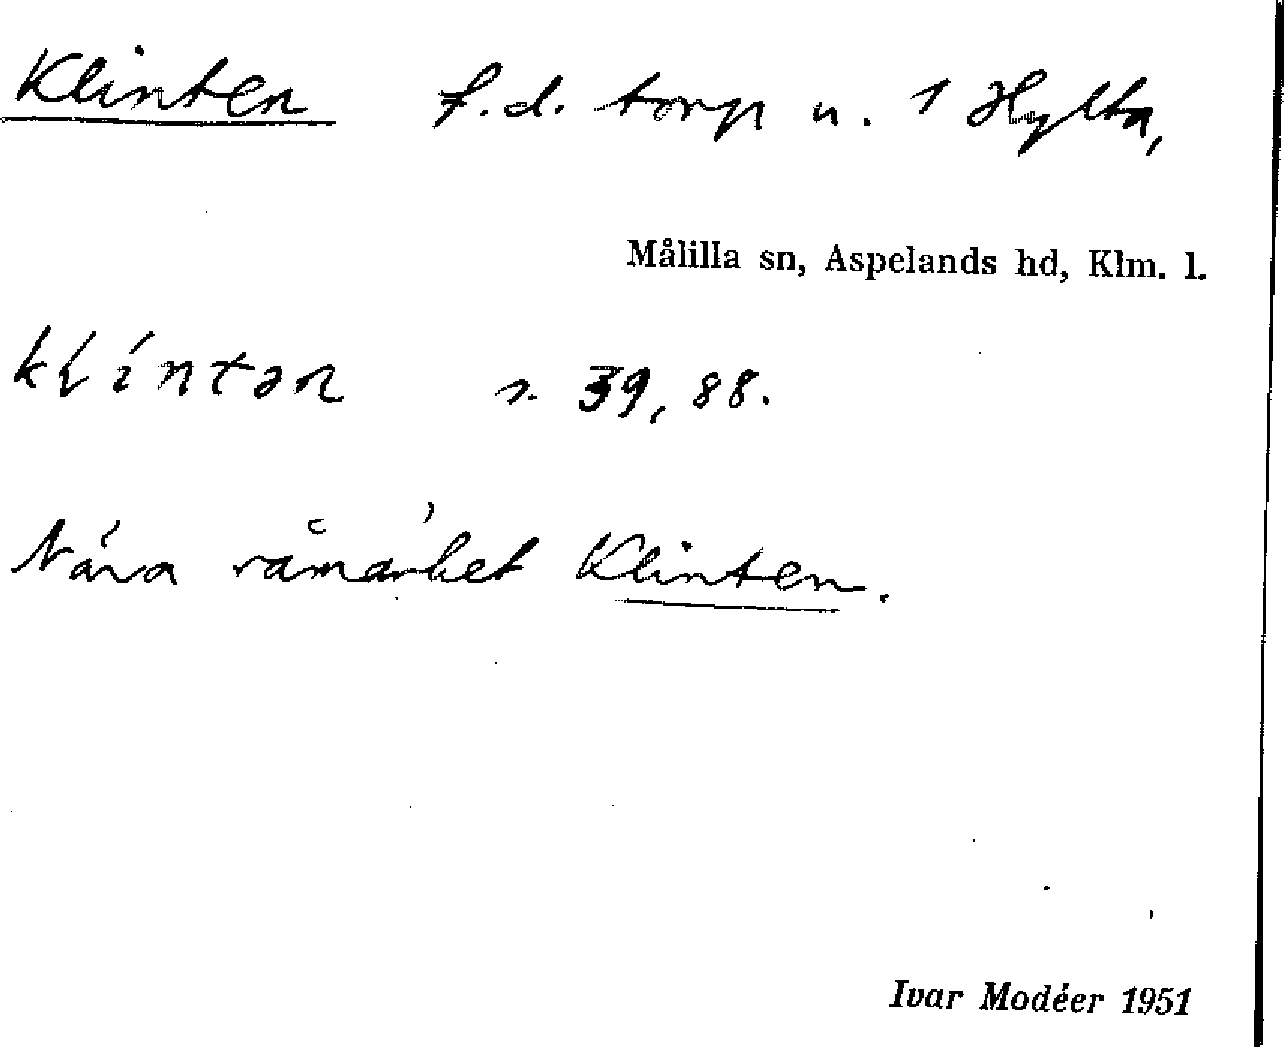 Klinten f.d. torp u. 1 Hylta,
Målilla sn, Aspelands hd, Klm. l.
kḷíntən s. 39, 88.
Nära råmärket Klinten.
Ivar Modéer 1951